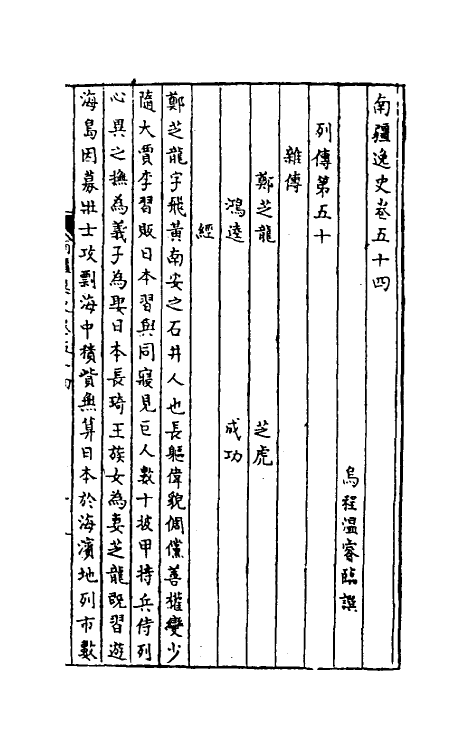 南疆逸史卷五十四
烏程溫睿臨譔
列傳第五十
雜傳
鄭芝龍
芝虎
鴻逵
成功
經
鄭芝龍字飛黃南安之石井人也長軀偉貌倜儻善權變少
隨大賈李習販日本習與同寢見巨人數十披甲持兵侍列
心異之撫為義子為娶日本長琦王族女為妻芝龍既習遊
海島因募壯士攻剽海中積貲無算日本於海濱地列市數